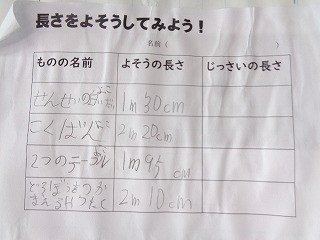 長さをよそうしてみよう！
名前（　　　　　　　　）
ものの名前 よそうの長さ じっさいの長さ
せんせいの 1m30cm
こくばん 2m20cm
2つのテーブル 1m95cm
どろぼうをつか
まえる 2m10cm